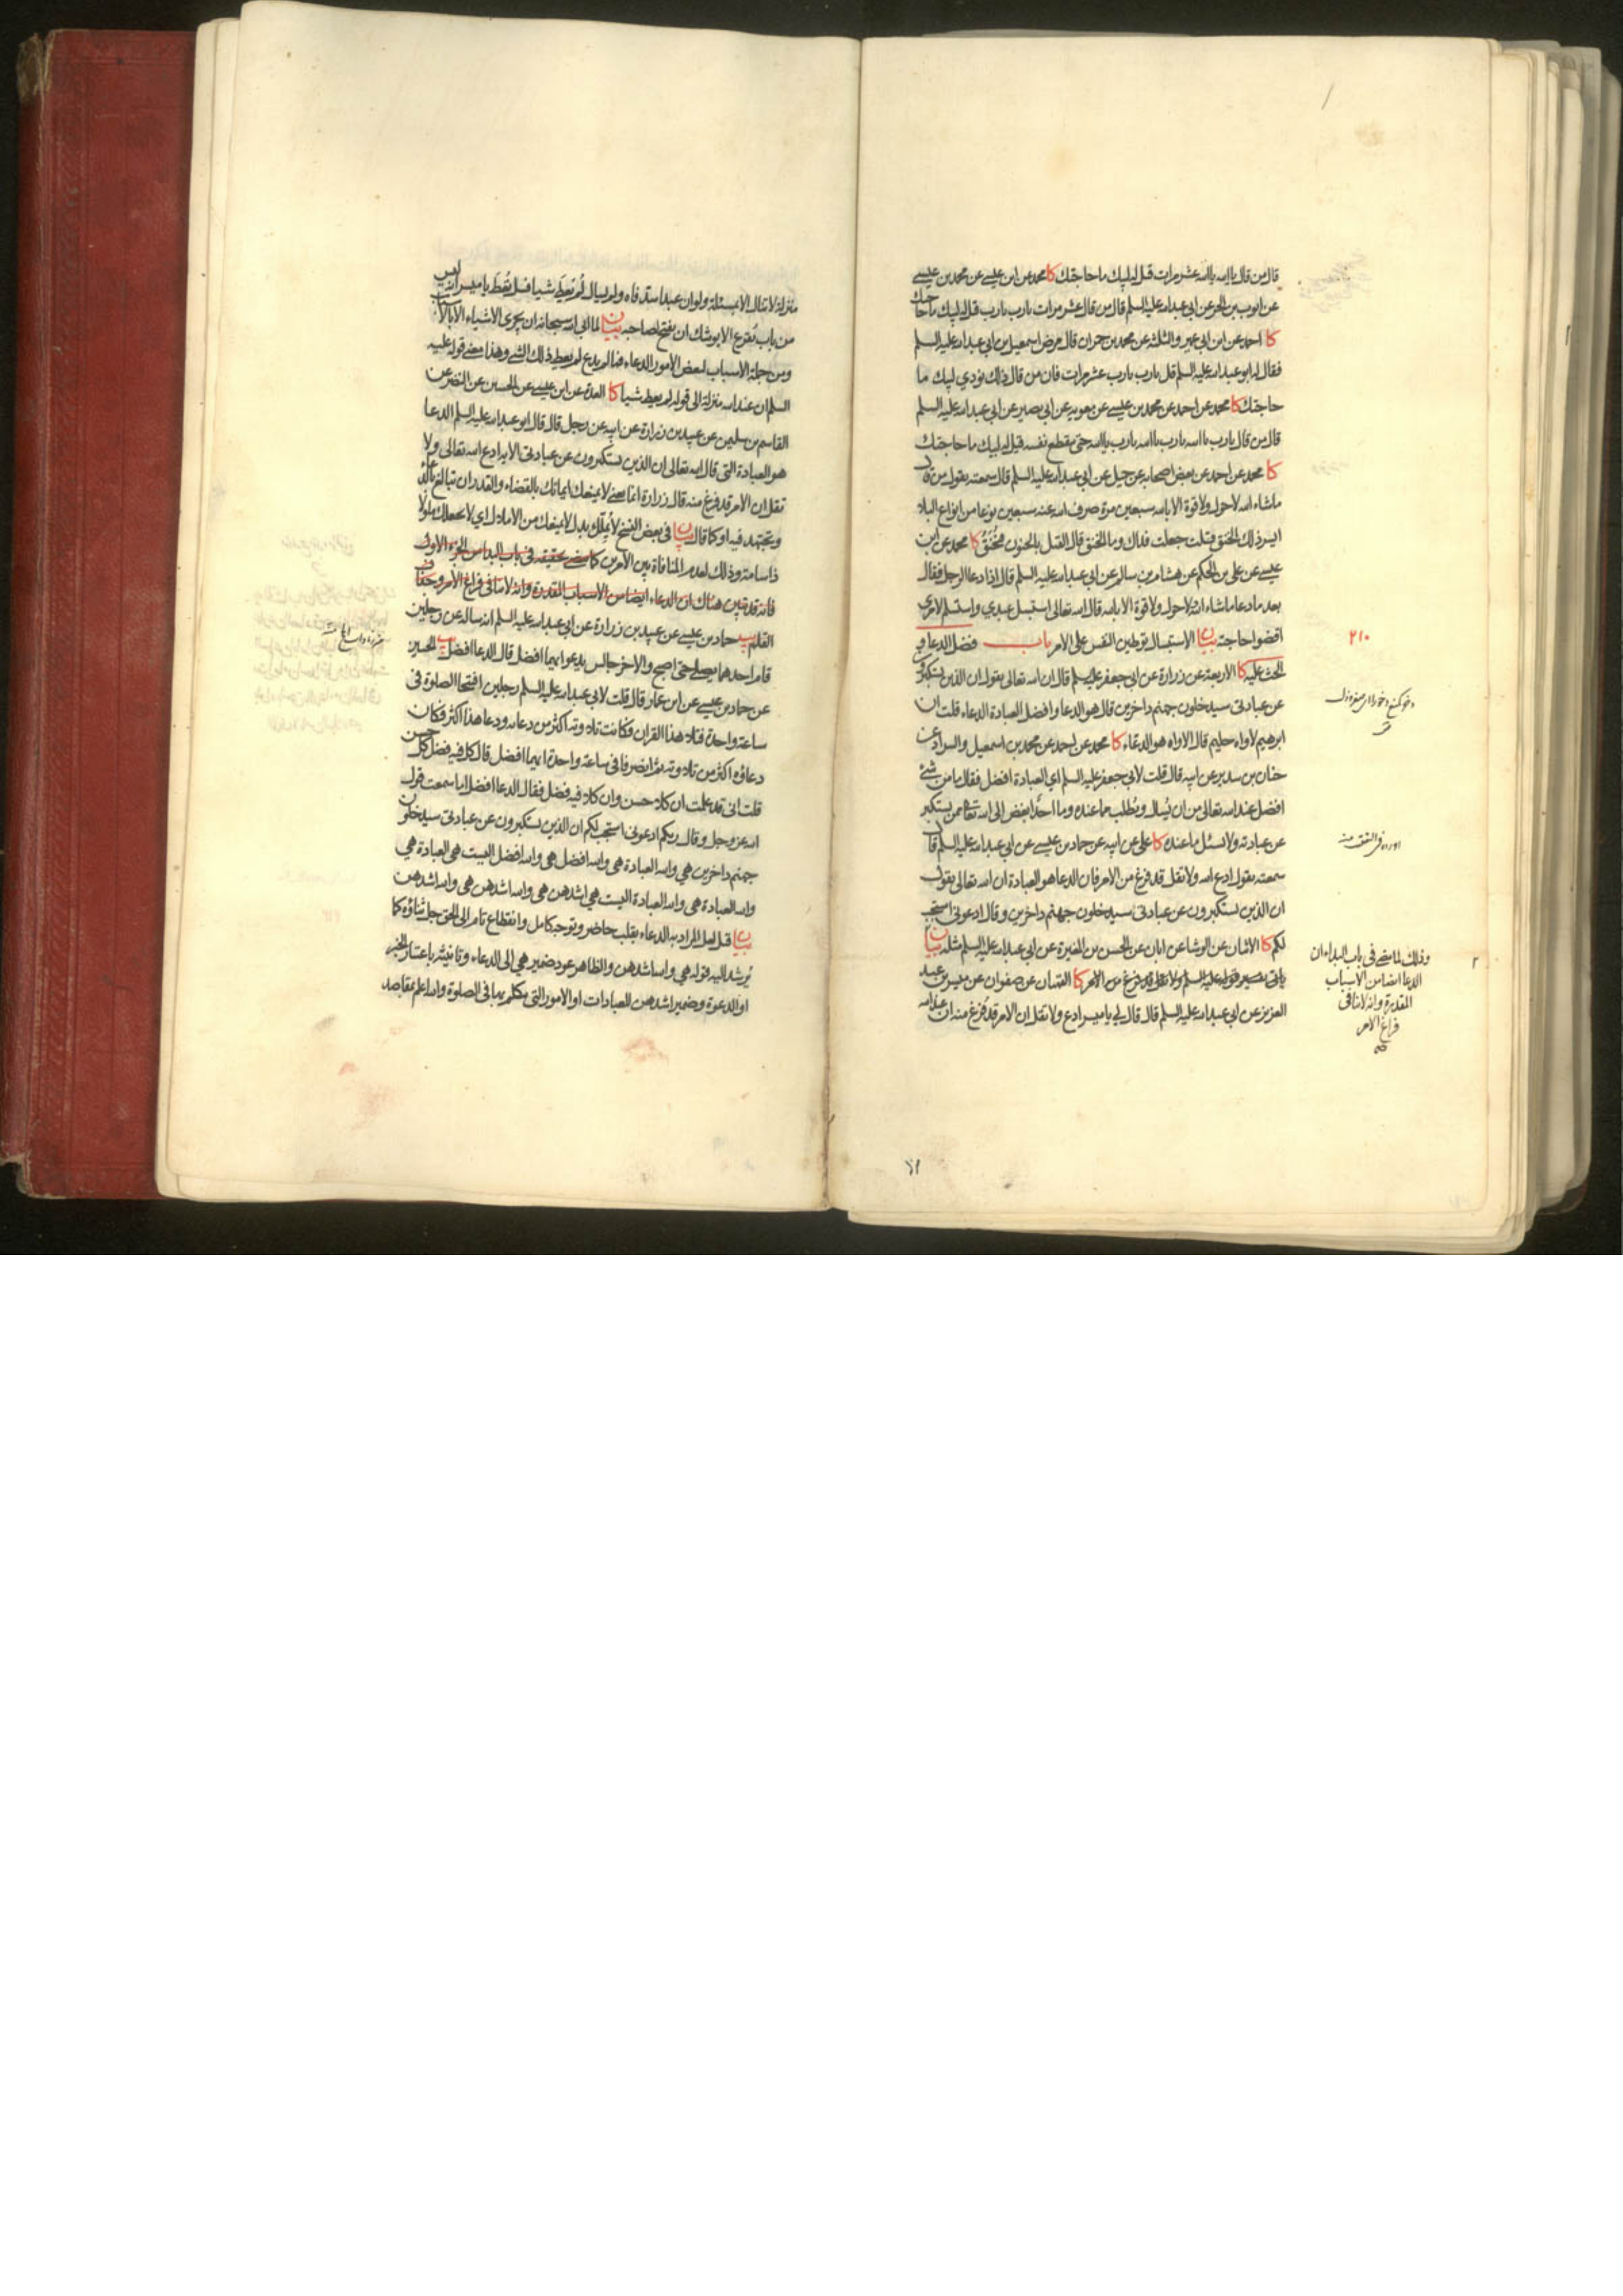 قال من قال يا الله يا الله عشر مرات قيل له لبيك ما حاجتك كا محمد عن ابن عيسى عن محمد بن عيسى
عن ايوب بن الحر عن ابي عبد الله عليه السلم قال من قال عشر مرات يا رب يا رب قيل له لبيك ما حاجتك
كا احمد عن ابن ابي عمير والثلثة عن محمد بن حمران قال مرض اسمعيل بن ابي عبد الله عليه السلم
فقال له ابو عبد الله عليه السلم قل يا رب يا رب عشر مرات فان من قال ذلك نودي لبيك ما
حاجتك كا محمد عن احمد عن محمد بن عيسى عن معويه عن ابي بصير عن ابي عبد الله عليه السلم
قال من قال يا رب يا الله يا رب يا الله يا رب يا الله حتى ينقطع نفسه قيل له لبيك ما حاجتك
كا محمد عن احمد عن بعض اصحابه عن جميل عن ابي عبد الله عليه السلم قال سمعته يقول من قال
ماشاء الله لا حول ولا قوة الا بالله سبعين مرة صرف الله عنه سبعين نوعا من انواع البلاء
ايسر ذلك الخنق قلت جعلت فداك وما الخنق قال القتل بالجنون فيخنق كا محمد عن ابن
عيسى عن علي بن الحكم عن هشام بن سالم عن ابي عبد الله عليه السلم قال اذا دعا الرجل فقال
بعد ما دعا ماشاء الله لا حول ولا قوة الا بالله قال الله تعالى استبسل عبدي واستسلم لامري
اقضوا حاجته بيان الاستبسال توطين النفس على الامر باب فضل الدعاء و
الحث عليه كا الاربعة عن زرارة عن ابي جعفر عليه السلم قال ان الله تعالى يقول ان الذين يستكبرون
عن عبادتي سيدخلون جهنم داخرين قال هو الدعا وافضل العبادة الدعاء قلت ان
ابرهيم لاواه حليم قال الاواه هو الدعاء كا محمد عن احمد عن محمد بن اسمعيل والسراد عن
حنان بن سدير عن ابيه قال قلت لابي جعفر عليه السلم اي العبادة افضل فقال ما من شئ
افضل عند الله تعالى من ان يُسال ويُطلب مما عنده وما احدٌ ابغض الى الله تعالى ممن يستكبر
عن عبادته ولا يسئل ما عنده كا علي عن ابيه عن حماد بن عيسى عن ابي عبد الله عليه السلم قال
سمعته يقول ادع الله ولا تقل قد فرغ من الامر فان الدعا هو العبادة ان الله تعالى يقول
ان الذين يستكبرون عن عبادتي سيدخلون جهنم داخرين وقال ادعوني استجب
لكم كا الاثنان عن الوشا عن ابان عن الحسن بن المغيرة عن ابي عبد الله عليه السلم مثله بيان
ياتي تفسير قوله عليه السلم ولا تقل قد فرغ من الامر كا القميان عن صفوان عن ميسر بن عبد
العزيز عن ابي عبد الله عليه السلم قال قال لي يا ميسر ادع ولا تقل ان الامر قد فُرغ منه ان عند الله
٢١٠
وذلك لما مضى في باب البداء ان
الدعا ايضا من الاسباب
المقدرة وانه لا ينافي
فراغ الامر
منزلة لا تنال الا بمسئلة ولو ان عبدا سد فاه ولم يسال لم يُعط شيا فسل تُعط يا ميسر انه ليس
من باب يُقرع الا يوشك ان يفتح لصاحبه بيان لما ابى الله سبحانه ان يجري الاشياء الا بالاسباب
ومن جملة الاسباب لبعض الامور الدعاء فما لم يدع لم يعط ذلك الشئ وهذا معنى قوله عليه
السلم ان عند الله منزلة الى قوله لم يعط شيا كا العدة عن ابن عيسى عن الحسين عن النضر عن
القاسم بن سليمن عن عبيد بن زرارة عن ابيه عن رجل قال قال ابو عبد الله عليه السلم الدعا
هو العبادة التي قال الله تعالى ان الذين يستكبرون عن عبادتي الاية ادع الله تعالى ولا
تقل ان الامر قد فرغ منه قال زرارة انما يعني لا يمنعك ايمانك بالقضاء والقدر ان تبالغ بالدعاء
وتجتهد فيه او كما قال بيان في بعض النسخ لا يُمِلّك بدل لا يمنعك من الاملال اي لا يجعلك ملولا
ذا سامة وذلك لعدم المنافاة بين الامرين كما مضى تحقيقه في باب البدا من الجزء الاول
فانه قد تبين هناك ان الدعاء ايضا من الاسباب المقدرة وانه لا ينافي فراغ الامر وجفاف
القلم يب حماد بن عيسى عن عبيد بن زرارة عن ابي عبد الله عليه السلم انه ساله عن رجلين
قام احدهما يصلي حتى اصبح والاخر جالس يدعو ايهما افضل قال الدعا افضل يب الحسين
عن حماد بن عيسى عن ابن عمار قال قلت لابي عبد الله عليه السلم رجلين افتتحا الصلوة في
ساعة واحدة فتلا هذا القران فكانت تلاوته اكثر من دعائه ودعا هذا اكثر فكان
دعاؤه اكثر من تلاوته ثم انصرفا في ساعة واحدة ايهما افضل قال كل فيه فضل كل حسن
قلت اني قد علمت ان كلا حسن وان كلا فيه فضل فقال الدعا افضل اما سمعت قول
الله عز وجل وقال ربكم ادعوني استجب لكم ان الذين يستكبرون عن عبادتي سيدخلون
جهنم داخرين هي والله العبادة هي والله افضل هي والله افضل اليست هي العبادة هي
والله العبادة هي والله العبادة اليست هي اشدهن هي والله اشدهن هي والله اشدهن
بيان قيل لعل المراد به الدعاء بقلب حاضر وتوجه كامل وانقطاع تام الى الحق جل ثناؤه كما
يُرشد اليه قوله هي والله اشدهن والظاهر عود ضمير هي الى الدعاء وتانيثه باعتبار الخبر
او الدعوة وضمير اشدهن للعبادات او الامور التي يتكلم بها في الصلوة والله اعلم بمقاصد